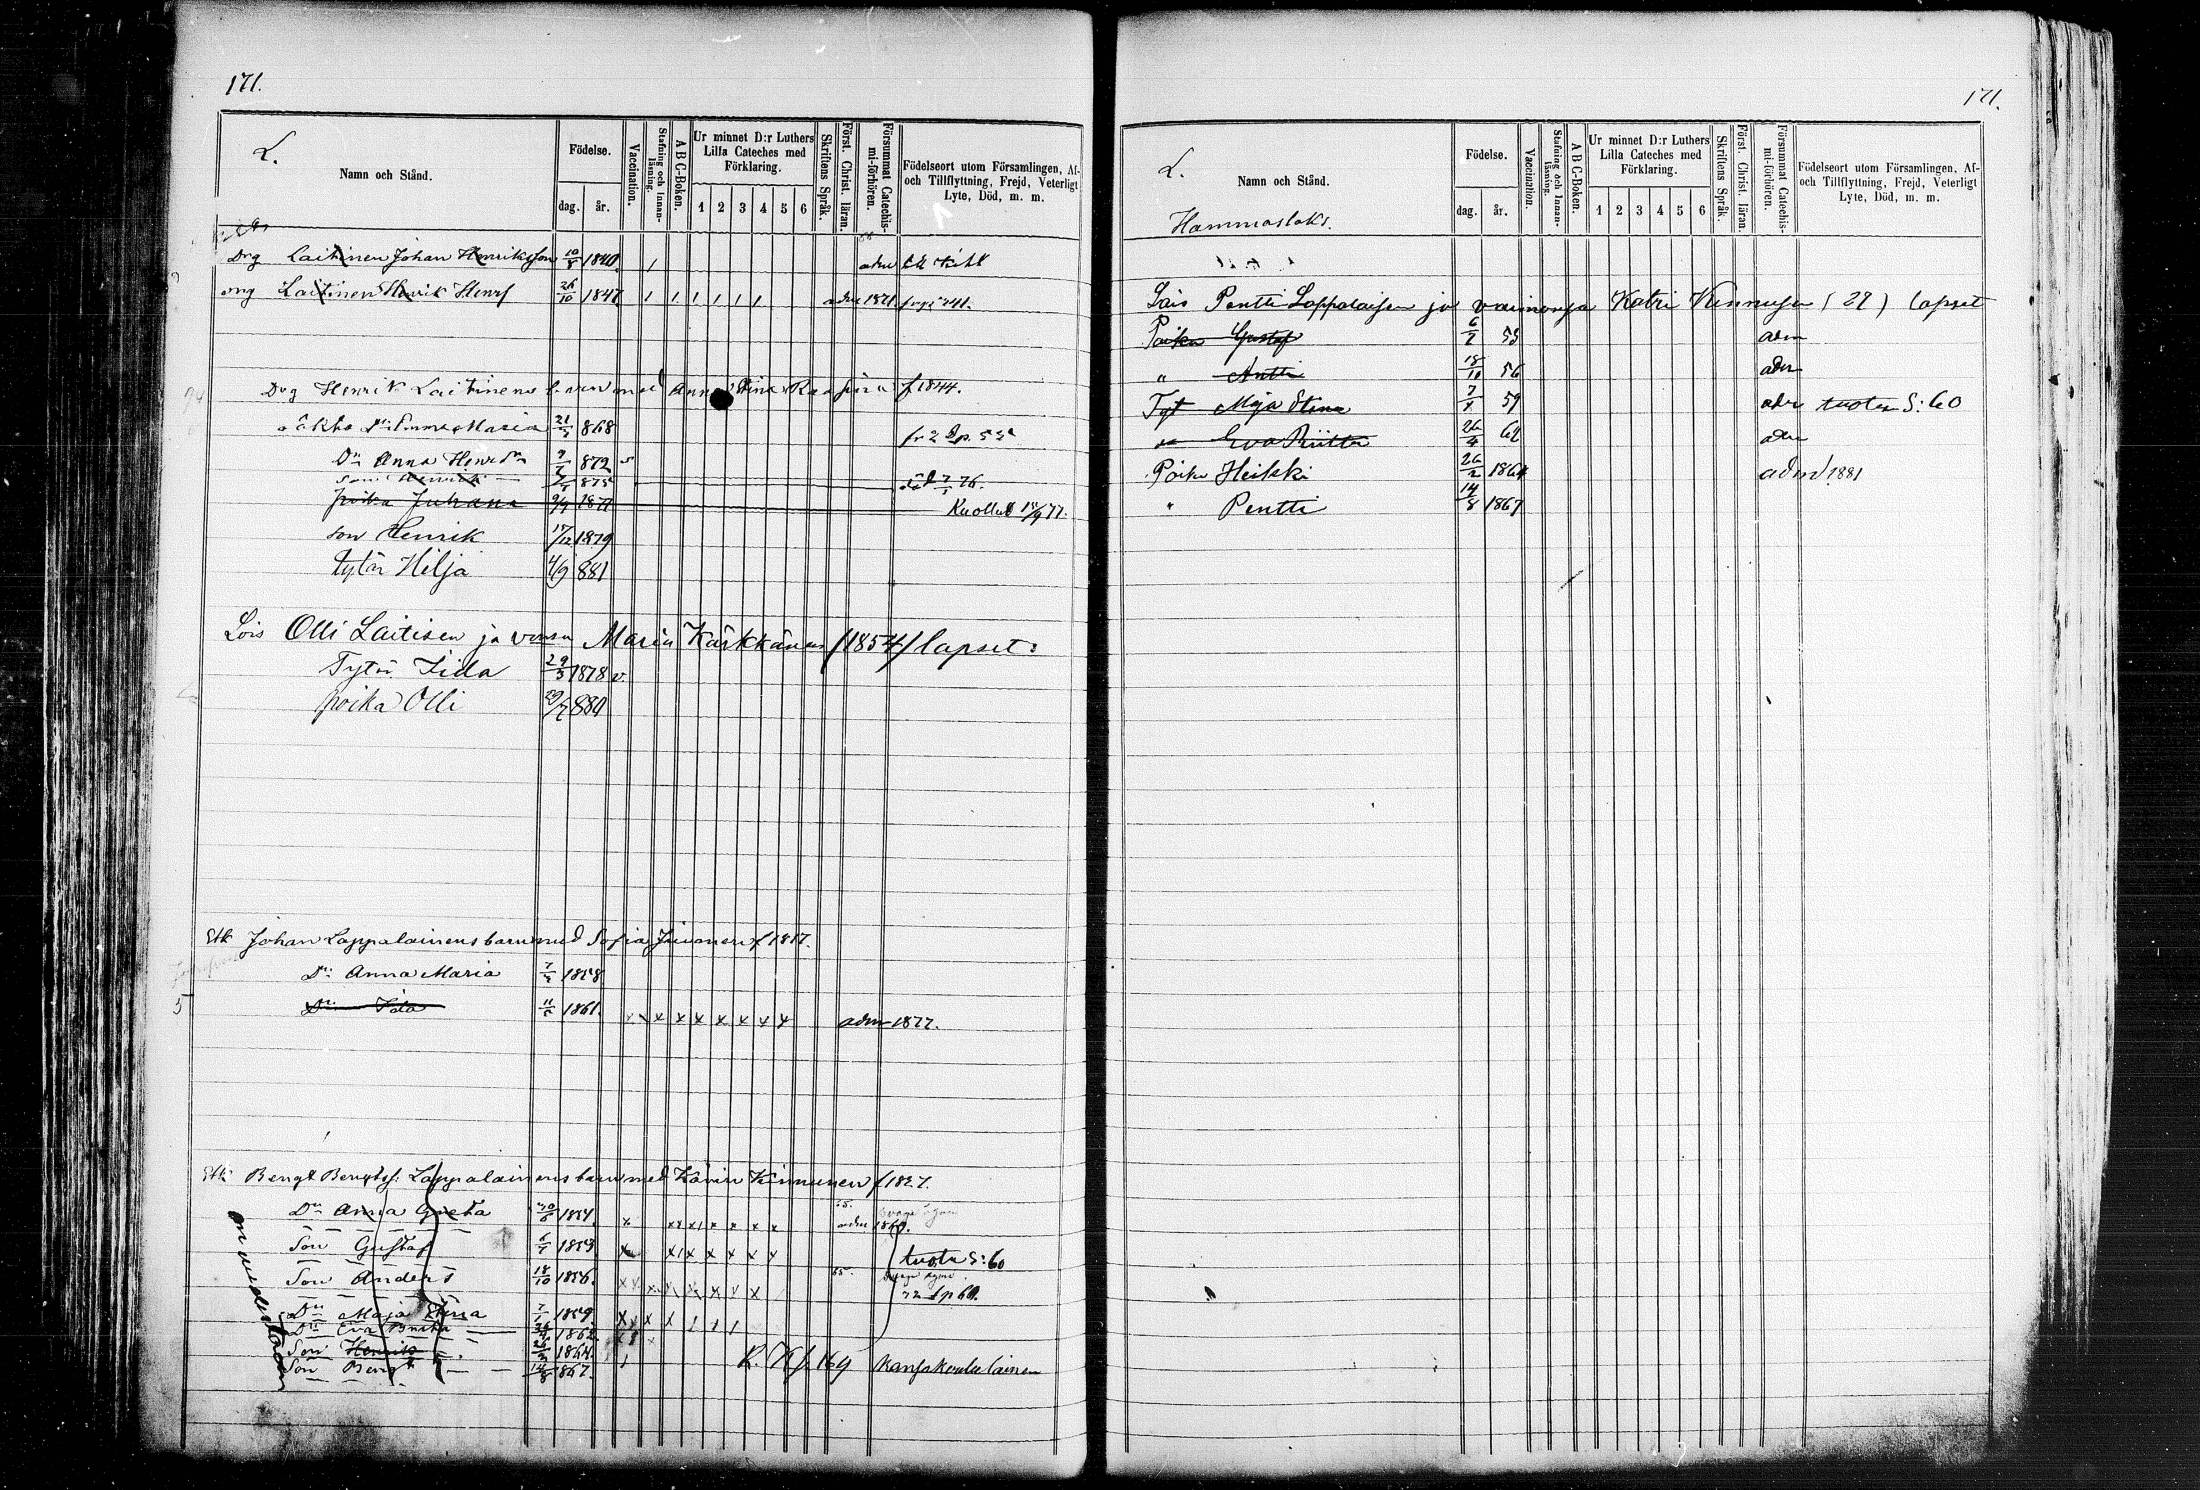 171.
L.
Namn och Stånd.
Födelse.
dag. år.
Vaccination.
Stafning och Innan-läsning.
A B C-Boken.
Ur minnet D:r Luthers Lilla Cateches med Förklaring.
1 2 3 4 5 6
Skriftens Språk.
Först. Christ. läran.
Försummat Catechis-mi-förhören.
Födelseort utom Församlingen, Af- och Tillflyttning, Frejd, Veterligt Lyte, Död, m. m.
Drg Laitinen Johan Henriksson 10/8 1840
Laitinen Henrik Henrs 26/10 1847 adm 1871
Drg Henrik Laitinens barn med Anna Stina f 1844.
Dr Emma Maria 21/ 868
Dr Anna Henrdr 872
Son Henrik 875 76.
poika Juhana 9/9 1877 Kuollut 15/9 77.
son Henrik 15/12 1879
tytär Hilja 4/9 881
Lois Olli Laitisen ja vmsn Maria Kärkkänen (1854) lapset:
Tytär Iida 29/3 1878 v.
poika Olli 29/7 880
Etk Johan Lappalainens barn med Sofia f 1817.
Dr Anna Maria 1858
Dr Ida 11/ 1861. x x x x x x x adm 1877.
Etk Bengt Bengtss: Lappalainens barn med Karin Kinnunen f 1827.
Dr Anna Greta 1851. adm 1860.
Son Gustaf 1853 tuotu S: 60
Son Anders 18/10 1856. 72 Sp 60.
Dr Maja Stina 7/ 1859.
Dr Eva Brita 1862.
Son Henrik 1864.
Son Bengt 14/8 867. R. K. 169 Kansakoululainen
171.
L.
Namn och Stånd.
Hammaslaks.
Födelse.
dag. år.
Vaccination.
Stafning och Innan-läsning.
A B C-Boken.
Ur minnet D:r Luthers Lilla Cateches med Förklaring.
1 2 3 4 5 6
Skriftens Språk.
Först. Christ. läran.
Försummat Catechis-mi-förhören.
Födelseort utom Församlingen, Af- och Tillflyttning, Frejd, Veterligt Lyte, Död, m. m.
Lois Pentti Lappalaisen ja vaimonsa Katri Kinnusen (27) lapset
Poika Gustaf 53 adm
" Antti 18/10 56 adm
Tyt Maja Stina 59 adm tuotu S: 60
" Eva Riitta 26/4 62 adm
Poika Heikki 26/2 1864 adm 1881
" Pentti 14/8 1867